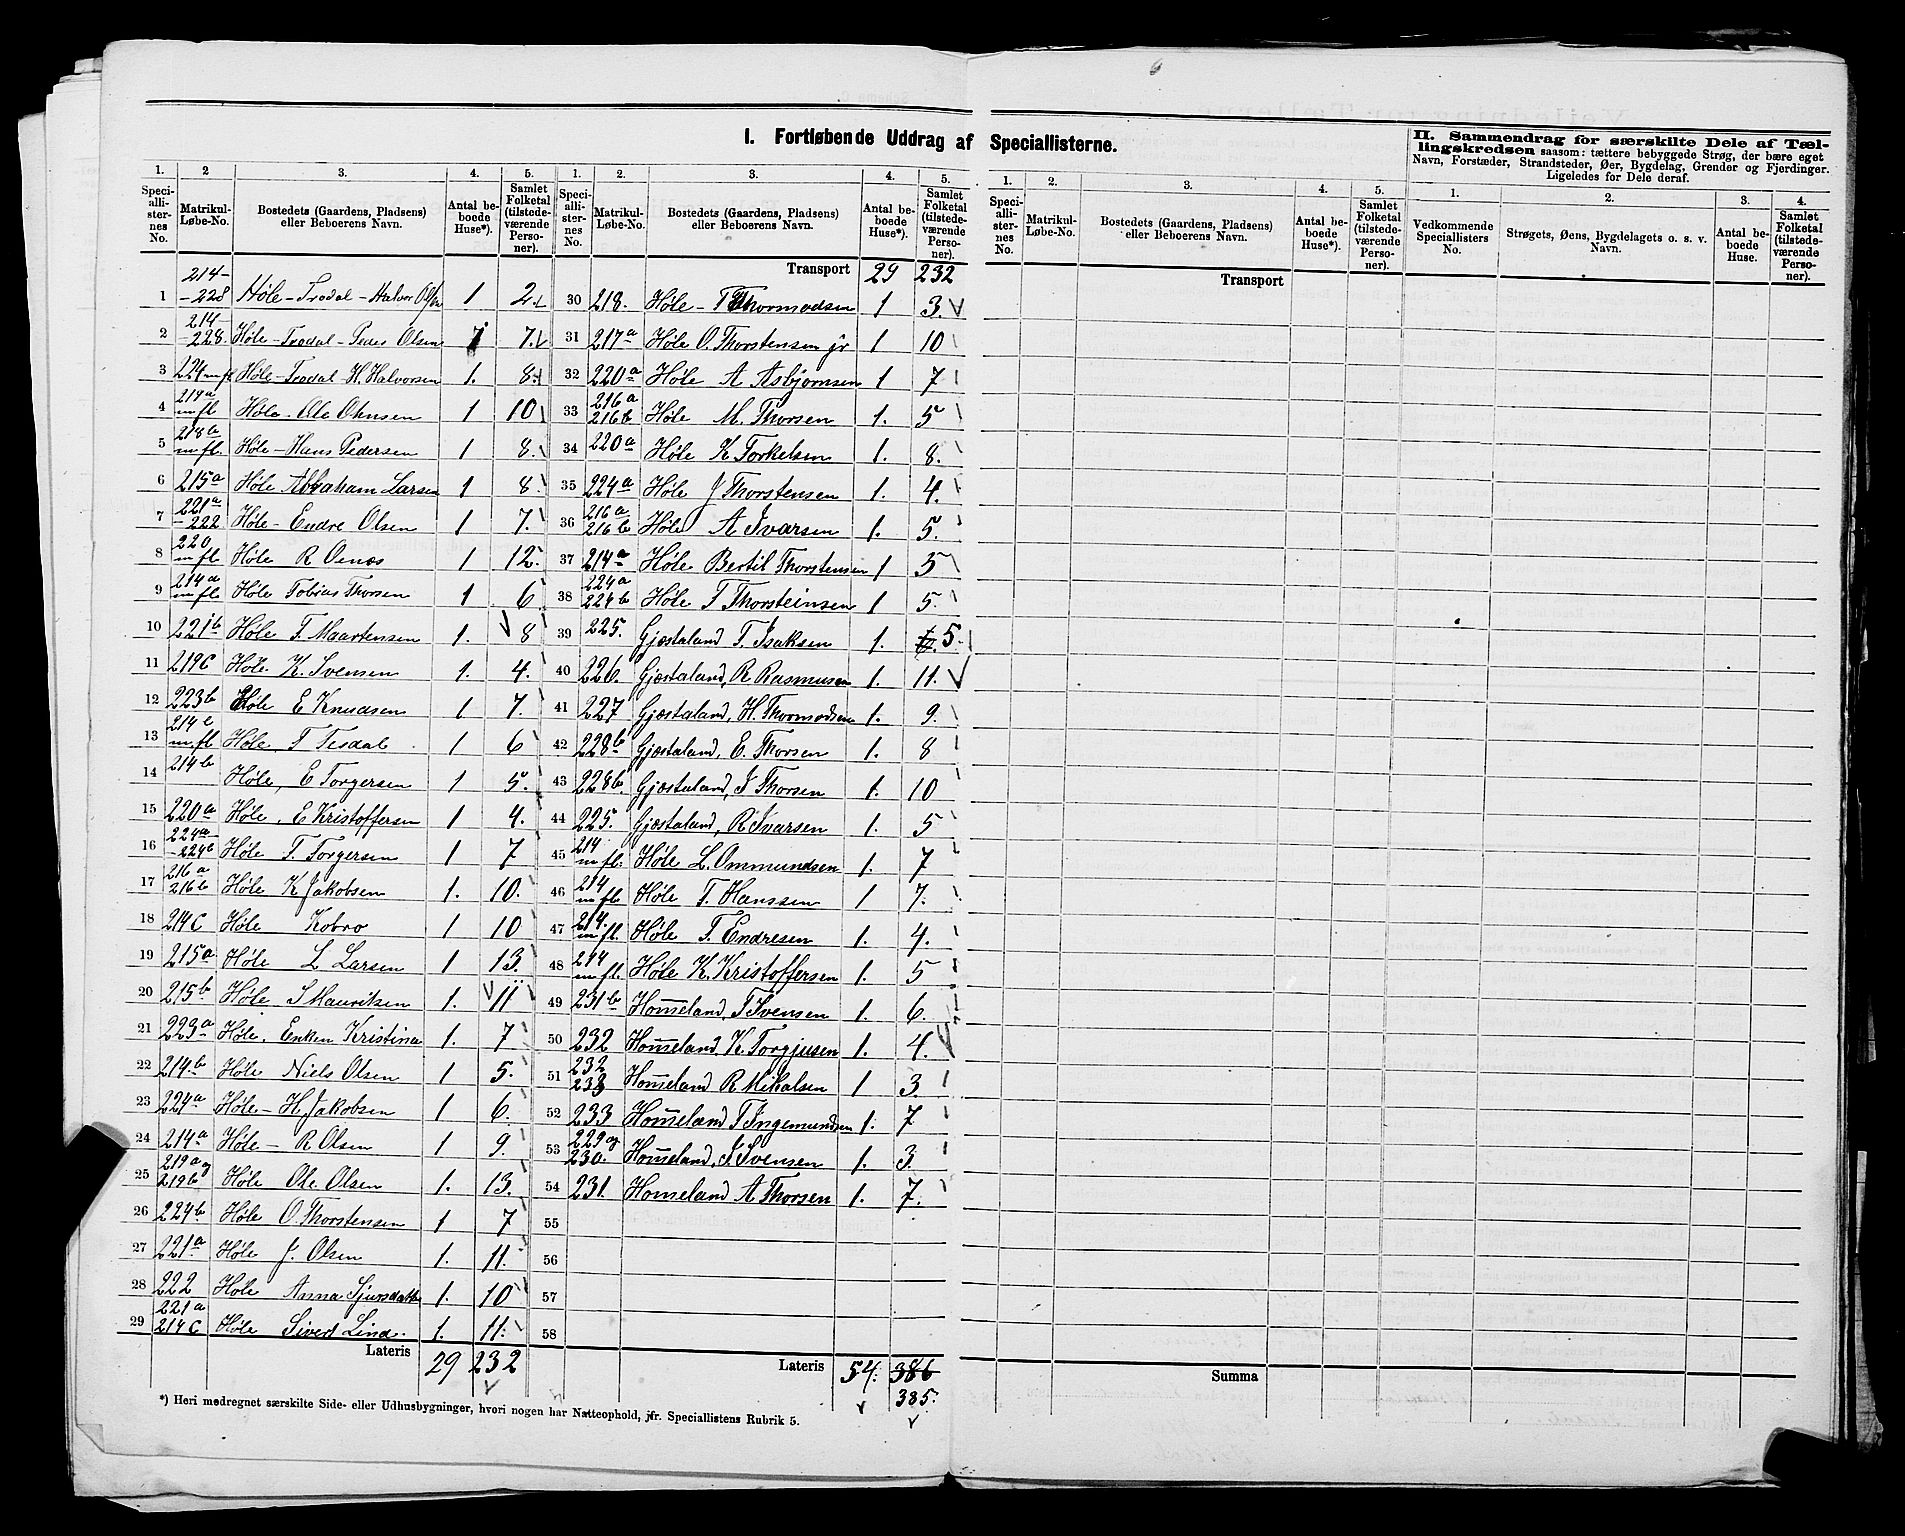 I. Fortløbende Uddrag af Speciallisterne.
II. Sammendrag for særskilte Dele af Tællingskredsen saasom: tættere bebyggede Strøg, der bære eget
Navn, Forstæder, Strandsteder, Øer, Bygdelag, Grender og Fjerdinger.
Ligeledes for Dele deraf.
1. 2 3. 4. 5.
Speciallisternes No. Matrikul-Løbe-No. Bostedets (Gaardens, Pladsens) eller Beboerens Navn. Antal beboede Huse*). Samlet Folketal (tilstedeværende Personer).
1 214-228 Høle-Trodal-Halvor Olsen 1 2.
2 214-228. Høle-Trodal-Peder Olsen 1 7.
3 224 m fl Høle-Trodal-H. Halvorsen 1. 8.
4 219a m fl Høle. Ole Ohnsen 1 10
5 218b m fl. Høle-Hans Pedersen 1 8.
6 215a Høle Abraham Larsen 1 8.
7 221a-222 Høle-Endre Olsen 1 7.
8 220 m fl Høle R Oenæs 1 12.
9 214a m fl Høle Tobias Thorsen 1 6
10 221b Høle T. Maartensen 1. 8
11 219c Høle. K. Svensen 1. 4.
12 223b Høle E Knudsen 1 7.
13 214e m fl Høle T Tesdal 1 6
14 214b Høle, E Torgersen 1 5.
15 220a Høle, E Kristoffersen 1 4.
16 224a-224b Høle T. Torgersen 1 7
17 216a 216b Høle K Jakobsen 1. 10.
18 214c Høle Kobro 1 10
19 215a Høle L Larsen 1 13.
20 215b Høle S Mauritsen 1. 11
21 223a Høle. Enken Kristina 1. 7
22 214.b Høle Niels Olsen 1 5.
23 224a Høle-H. Jakobsen 1 6.
24 214a Høle-R Olsen 1 9.
25 219a og 219b Høle Ole Olsen 1. 13.
26 224b Høle O. Thorstensen 1 7
27 221a Høle J. Olsen 1. 11.
28 222 Høle Anna Sjursdatter 1. 10
29 221a 214c Høle Sivert Lind. 1. 11.
Lateris 29 232
*) Heri medregnet særskilte Side- eller Udhusbygninger, hvori nogen har Natteophold, jfr. Speciallistens Rubrik 5.
1. 2. 3. 4. 5.
Speciallisternes No. Matrikul-Løbe-No. Bostedets (Gaardens, Pladsens) eller Beboerens Navn. Antal beboede Huse*). Samlet Folketal (tilstedeværende Personer).
Transport 29 232
30 218. Høle-T Thormodsen 1 3.
31 217a Høle O. Thorstensen jr 1 10
32 220a Høle A Asbjornsen 1 7
33 216a 216b Høle M. Thorsen 1. 5
34 220a Høle K Torkelsen 1. 8.
35 224a Høle J Thorstensen 1. 4.
36 216a 216b Høle A Ivarsen 1. 5.
37 214a Høle Bertil Thorstensen 1 5
38 224a 224b Høle T Thorsteinsen 1 5.
39 225. Gjæstaland T. Isaksen 1. 5.
40 226. Gjæstaland, R Rasmusen 1. 11.
41 227 Gjæstaland, H. Thormodsen 1. 9.
42 228b Gjæstaland, E. Thorsen 1. 8
43 228b. Gjæstaland, T Thorsen 1. 10
44 225. Gjæstaland, R Ivarsen 1. 5
45 214 m fl. Høle L. Ommundsen 1. 7
46 214 m fl Høle T. Hanssen 1 7.
47 214. m fl. Høle T. Endresen 1. 4.
48 214 m fl. Høle K. Kristoffersen 1. 5
49 231b Homeland, T Svensen 1. 6.
50 232 Homeland K. Torgjusen 1. 4.
51 232 233 Homeland R Mikalsen 1 3.
52 233 Homeland T Ingemundsen 1. 7
53 229 og 230. Homeland, S Svensen 1. 3.
54 231. Homeland A Thorsen 1. 7.
55
56
57
58
Lateris 54. 386
385.
1. 2. 3. 4. 5.
Speciallisternes No. Matrikul-Løbe-No. Bostedets (Gaardens, Pladsens) eller Beboerens Navn. Antal beboede Huse*). Samlet Folketal (tilstedeværende Personer).
Transport
Summa
1. 2. 3. 4.
Vedkommende Speciallisters No. Strøgets, Øens, Bygdelagets o. s. v. Navn. Antal beboede Huse. Samlet Folketal (tilstedeværende Personer).